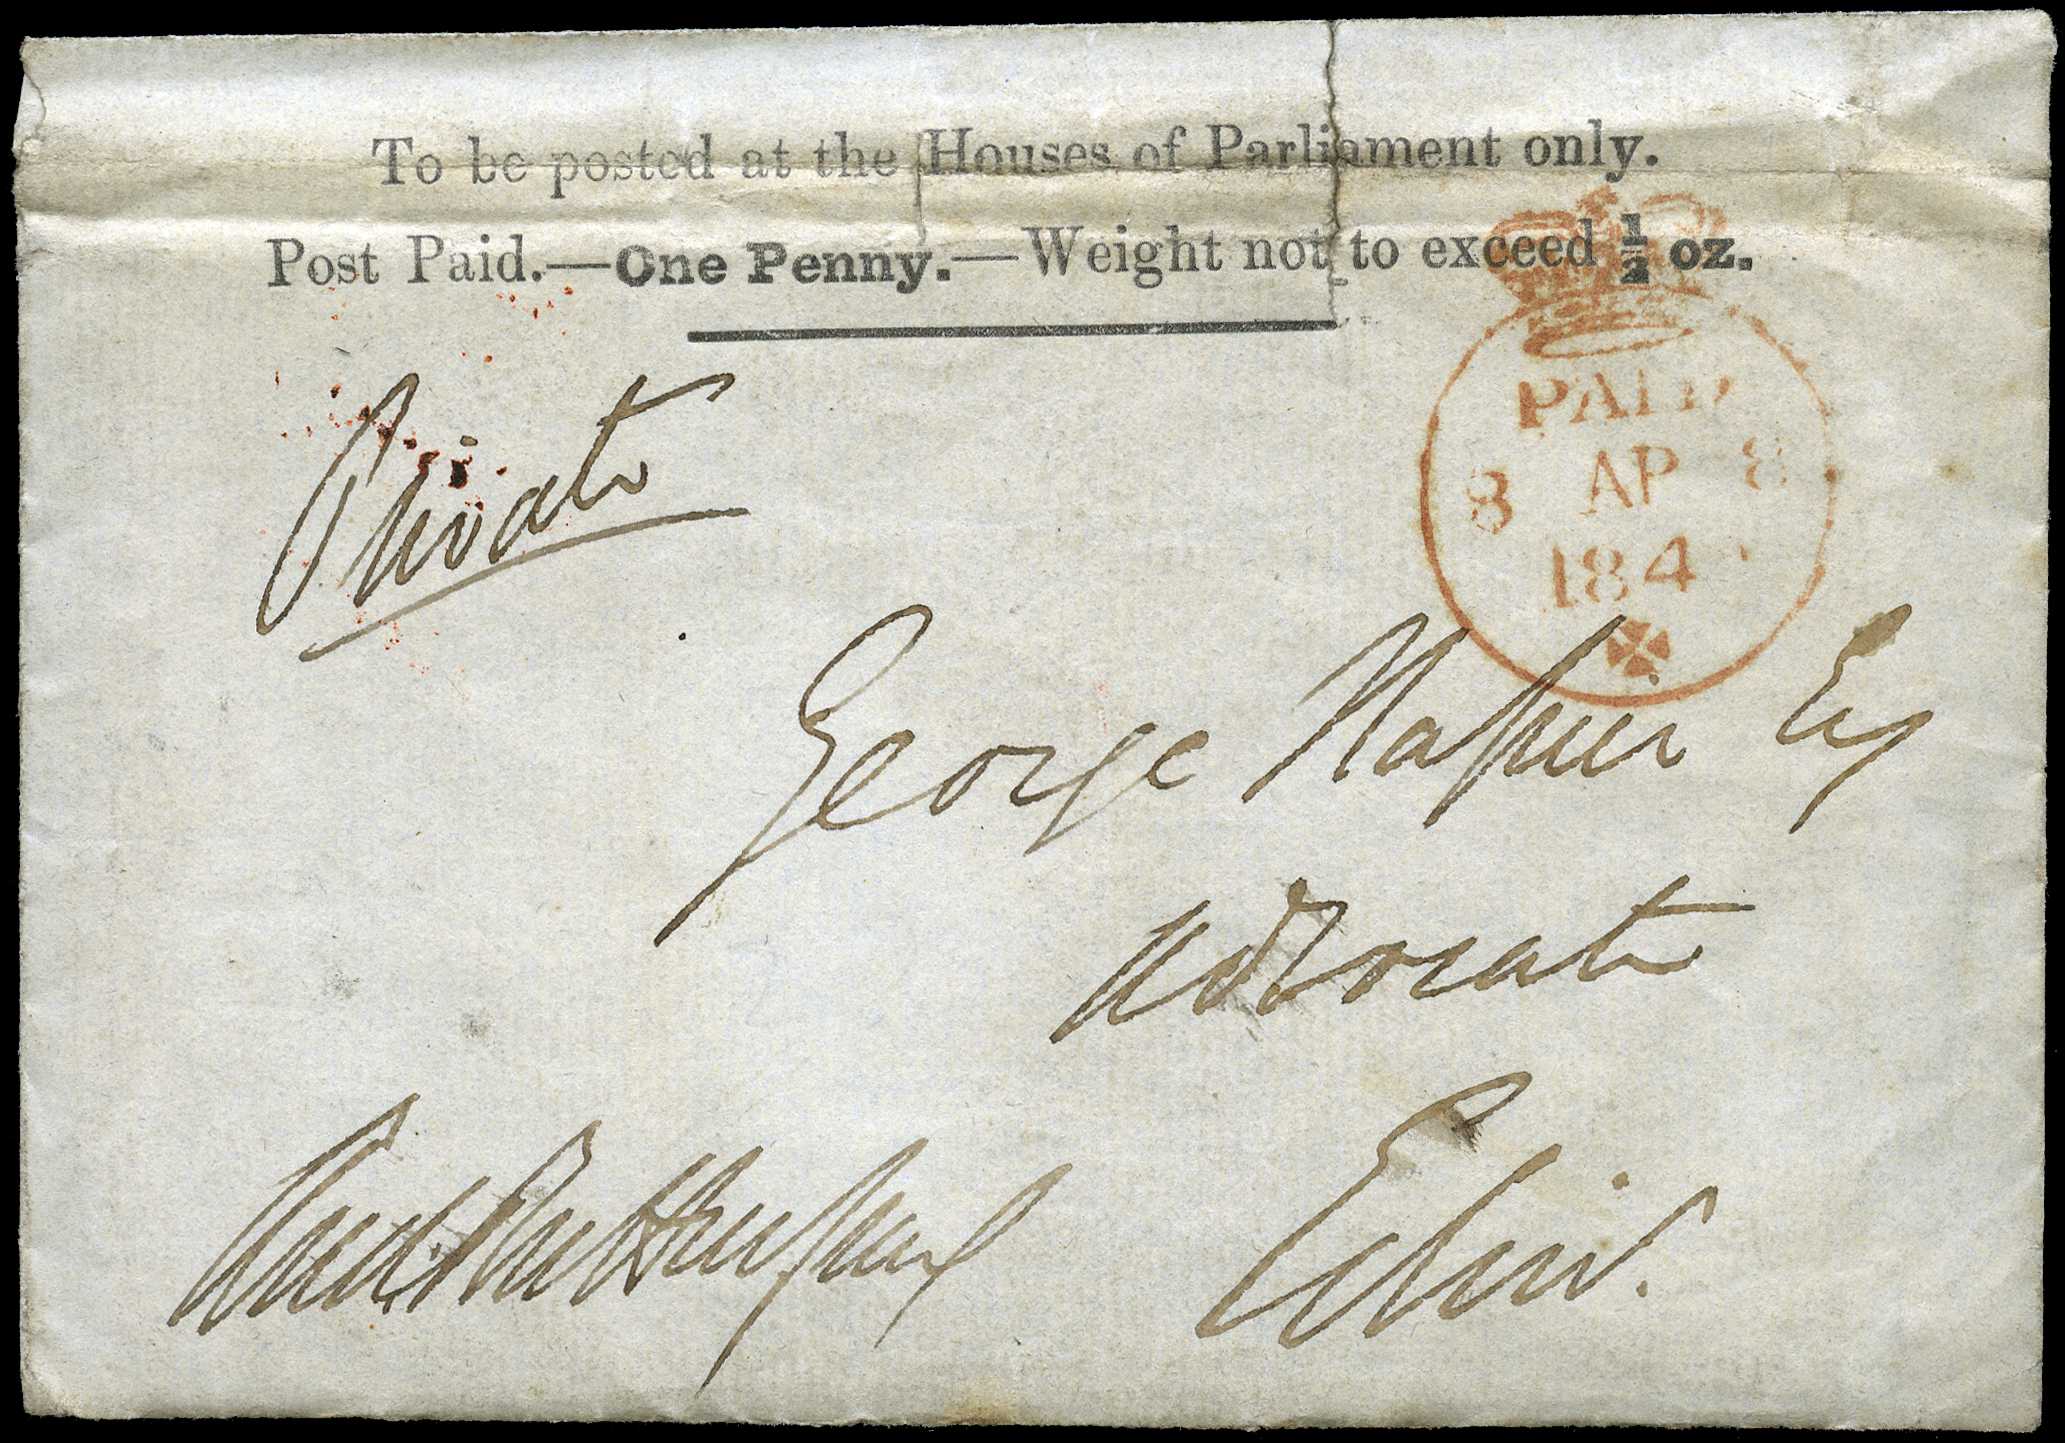 To be posted at the Houses of Parliament only.
Post Paid.—One Penny.—Weight not to exceed ½ oz.
PAID
8 AP 8
184
Private
George Napier Esq
Advocate
Edinr.
And. Rutherfurd